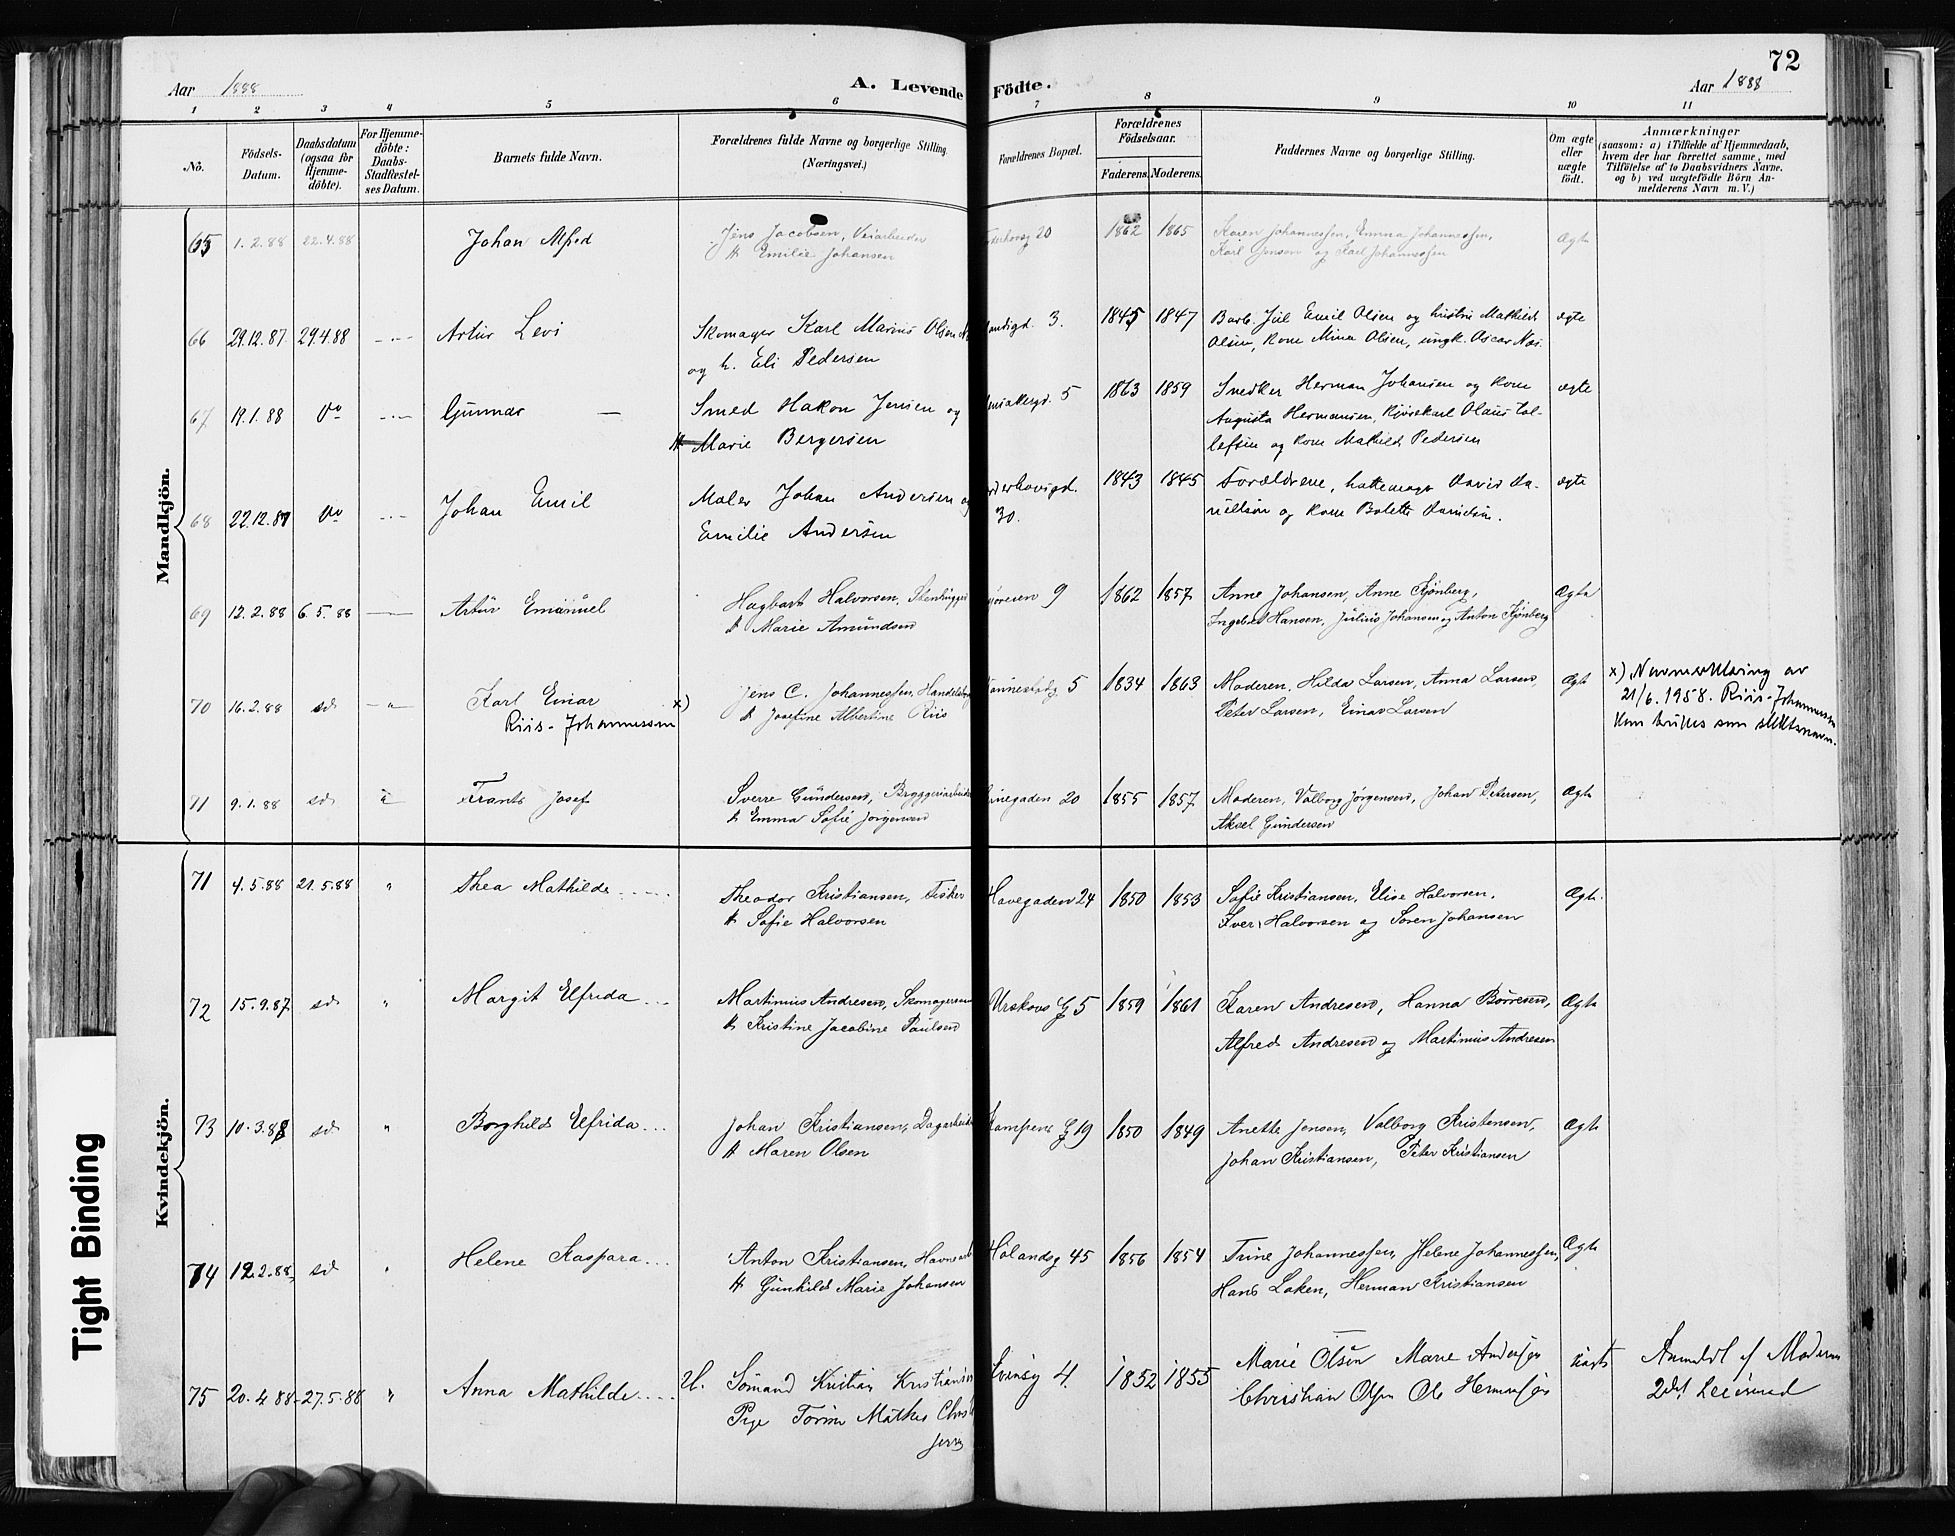 72
Aar 1888 A. Levende Födte. Aar 1888
1 2 3 4 5 6 7 8 9 10 11
No.
Födsels-
Datum.
Daabsdatum
(ogsaa for
Hjemme-
döbte).
For Hjemme-
döbte:
Daabs-
Stadfæstel-
ses Datum.
Barnets fulde Navn.
Forældrenes fulde Navne og borgerlige Stilling.
(Næringsvei.)
Forældrenes Bopæl.
Forældrenes
Födselsaar.
Faderens. Moderens.
Faddernes Navne og borgerlige Stilling.
Om ægte
eller
uægte
födt.
Anmærkninger
(saasom: a) i Tilfælde af Hjemmedaab,
hvem der har forrettet samme, med
Tilföielse af to Daabsvidners Navne,
og b) ved uægtefödte Börn An-
melderens Navn m. V.)
Mandkjön.
65 1.2.88 22.4.88 Johan Alfred Jens Jacobsen, Veiarbeider 20 1862 1865 Karen Johannessen, Emma Johannessen, Ægte
H Emilie Johansen Karl Jensen og Karl Johannessen
66 29.12.87 29.4.88 Artur Levi Skomager Karl Marius Olsen 3. 1845 1847 Barb. Jul Emil Olsen og hustru Mathild ægte
og h. Eli Pedersen Olsen, kone Mina Olsen, ungk. Oscar Næs.
67 19.1.88 Do Gunnar — Smed Hakon Jensen og 5 1863 1859 Snedker Herman Johansen og kone ægte
Marie Bergersen Augusta Hermansen, Kjørekarl Olaus Tol-
lefsen og kone Mathild Pedersen
68 22.12.87 Do Johan Emil Maler Johan Andersen og 1843 1845 Forældrene, hattemager David Da- ægte
Emilie Andersen 30. nielsen og kone Bolette Danielsen.
69 12.2.88 6.5.88 Artur Emanuel Hagbart Halvorsen, Stenhugger 9 1862 1857 Anne Johansen, Anne Kjønberg, Ægte
H Marie Amundsen Ingebret Hansen, Julius Johansen og Anton Kjønberg
70 16.2.88 sd. Karl Einar x) Jens C. Johannessen, 5 1834 1863 Moderen, Hilda Larsen, Anna Larsen, Ægte
Riis-Johannessen H Josefine Albertine Riis Peter Larsen, Einar Larsen
x) Navnemelding av
21/6. 1958. Riis-Johannessen
kan brukes som slektsnavn.
71 9.1.88 sd. Frants Josef Sverre Gundersen, Bryggeriarbeider 20 1855 1857 Moderen, Valborg Jørgensen, Johan Petersen, Ægte
H Emma Sofie Jørgensen Aksel Gundersen
Kvindekjön.
71 4.5.88 21.5.88 " Thea Mathilde Theodor Kristiansen, Fisker Havegaden 24 1850 1853 Sofie Kristiansen, Elise Halvorsen, Ægte
H Sofie Halvorsen Iver Halvorsen og Søren Johansen
72 15.9.87 sd. " Margit Elfrida Martinius Andresen, Skomagersvend Urskovs G 5 1859 1861 Karen Andresen, Hanna Børresen, Ægte
H Kristine Jacobine Paulsen Alfred Andresen og Martinius Andresen
73 10.3.88 sd. " Borghild Elfrida Johan Kristiansen, Dagarbeider Kampens G 19 1850 1849 Anette Jensen, Valborg Kristensen, Ægte
H Maren Olsen Johan Kristiansen, Peter Kristiansen
74 12.2.88 sd. Helene Kaspara Anton Kristiansen, Havnearb Holandsg 45 1856 1854 Trine Johannessen, Helene Johannessen, Ægte
H Gunhild Marie Johansen Hans Loken, Herman Kristiansen
75 20.4.88 27.5.88 " Anna Mathilde U. Sømand Kristian Kristiansen Svinsg 4. 1852 1855 Marie Olsen Marie Andersen Uægte Anmeldt af Moderen
Pige Christian Olsen Ole Hermansen 2det Leiermaal
Tight Binding